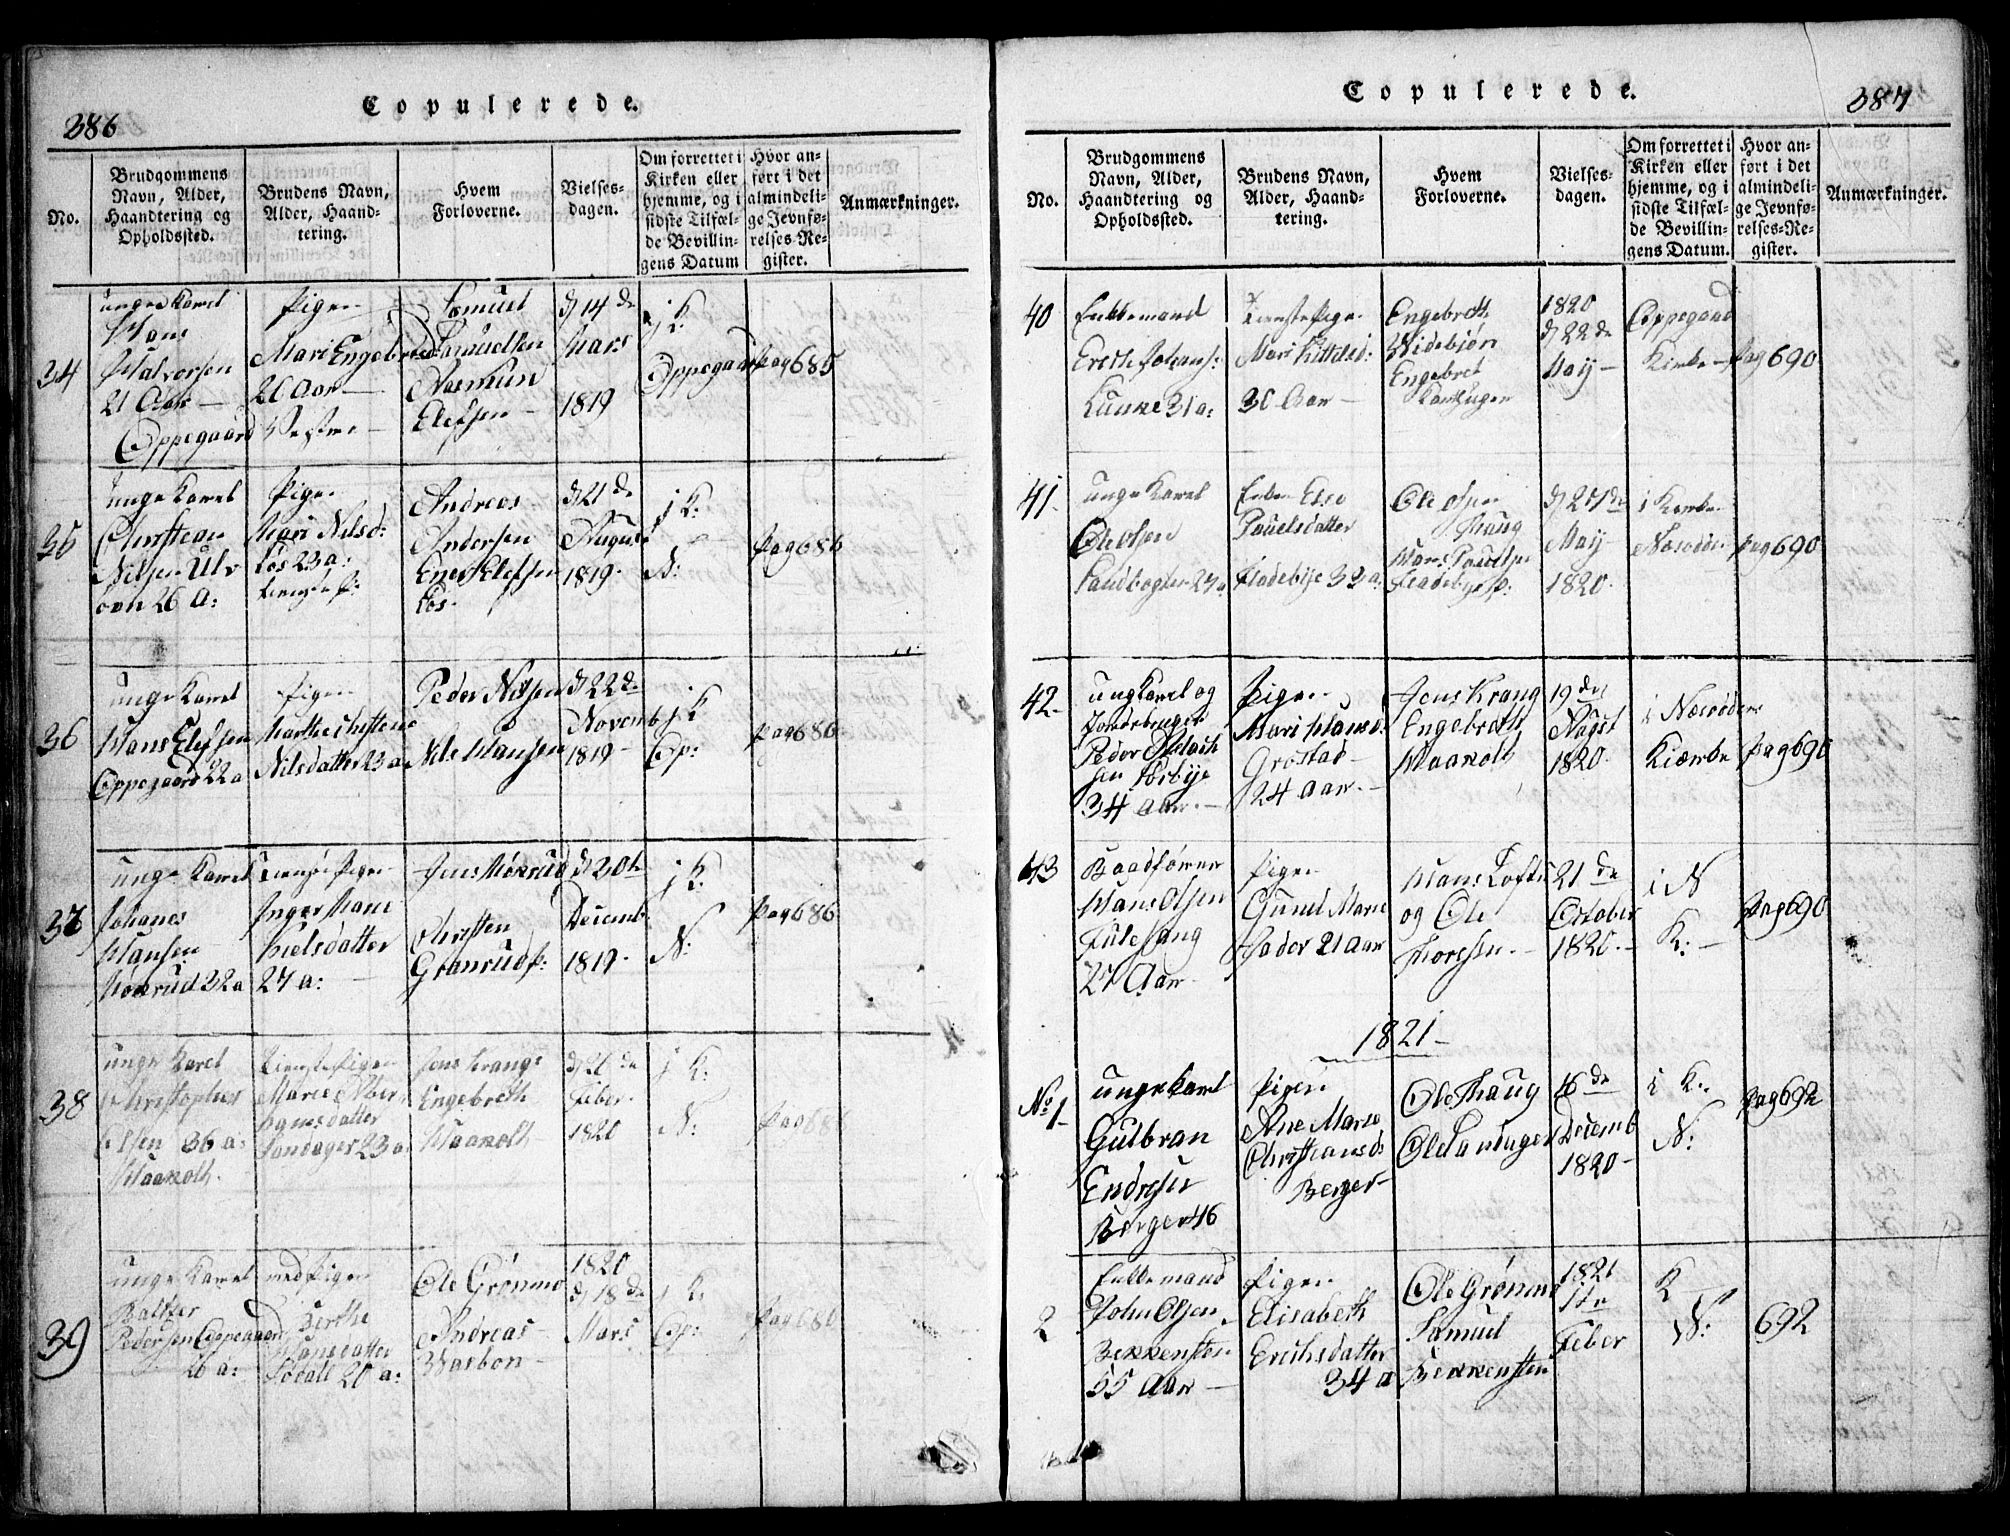 386
Copulerede.
No.
Brudgommens
Navn, Alder,
Haandtering og
Opholdssted.
Brudens Navn,
Alder, Haand-
tering.
Hvem
Forloverne.
Vielses-
dagen.
Om forrettet i
Kirken eller
hjemme, og i
sidste Tilfæl-
de Bevillin-
gens Datum
Hvor an-
ført i det
almindeli-
ge Jevnfø-
relses-Re-
gister.
Anmærkninger.
34
unge Karel
Hans
Halvorsen
21 Aar
Oppegaard
Pigen
Mari Engebred
26 Aar
Samuel
Samuelsen
Rasmus
Elefsen
d 14 de
Mars
1819
j K:
Oppegaard
Pag 685
35
unge Karel
Christean
Nilsen Ulv
oen 26 A:
Pige
Mari Nilsd:
Løs 23 a:
Andreas
Andersen
Ener Elefsen
Løs.
d 21 de
August
1819.
j K:
N:
Pag 686
36
unge Karel
Hans Elefsen
Oppegaard 22 a
Pigen
Marthe Christene
Nilsdatter 23 a
Peder Nilsen
Nils Hansen
d 22 de
Novemb
1819
j K
Op:
Pag 686
37
unge Karel
Johanes
Hansen
22 a
Tieneste Pigen
Inger Marie
Nielsdatter
27 a:
Christen
Granrud p:
d 20 de
Decemb
1819.
j K:
N:
Pag 686
38
unge Karel
Christopher
Olsen 36 a:
Haakoth.
Tieneste Pigen
Marie
23 a
Jens Krange
Engebreth
Haakoth
d 26 de
Feber.
1820
j K:
N:
Pag 686
39
unge Karel
Baltzer
Pedersen Oppegaard
26 a:
Pigen
Berthe
Hansdatter
20 a:
Ole Grønmo
Andreas
Warbon
1820
d 18 de
Mars
j K:
Op:
Pag 686
387
Copulerede.
No.
Brudgommens
Navn, Alder,
Haandtering og
Opholdssted.
Brudens Navn,
Alder, Haand-
tering.
Hvem
Forloverne.
Vielses-
dagen.
Om forrettet i
Kirken eller
hjemme, og i
sidste Tilfæl-
de Bevillin-
gens Datum.
Hvor an-
ført i det
almindeli-
ge Jevnfø-
relses-Re-
gister.
Anmærkninger.
40
Enkemand
Erich Johans:
31 a:
Tieneste Pige
Mari Kittelsd:
30 Aar
Engebreth
Widebjørn
Engebret
1820
d 22 de
May
Oppegaard
Kirke
Pag 690
41
unge Karel
Ole Olsen
27 a
Enke Else
Pouelsdatter
Fladebye 33 a:
Ole Olsen
Haug
Hans Pouelsen
Fladebye p:
d 27 de
May
1820.
i Kirke
Næsodden
Pag 690
42
ung Karel og
Jordbruger
Peder
34 Aar.
Pigen
Mari Hansd:
Grøstad
24 Aar.
Jens Krang
Engebreth
Haakoth
19 de
Augst
1820.
i Næsodden
Kierke
Pag 690
43
Baadfører
Hans Olsen
Fulesang
27 Aar
Pigen
Gunel Marie
21 Aar
Hans Lofts
og Ole
Thoresen.
21 de
October
1820.
i N
K:
Pag 690
1821
No 1
unge Karel
Gulbran
Endresen
Berger 46
Pigen
Ane Marie
Christiansd:
Berger
Ole Haug
Ole Sandager
16 de
Decemb
1820
i K:
N:
Pag 692
2
Enkemand
John Olsen
Bekkensten
55 Aar
Pigen
Elisabeth
Erichsdatter
34 a
Ole Grønmo
Samuel
Bekkensten
1821
Feber
K
N:
692